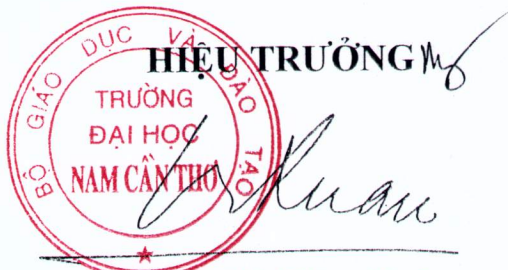 HIỆU TRƯỞNG
BỘ GIÁO DỤC VÀ ĐÀO TẠO
TRƯỜNG
ĐẠI HỌC
NAM CẦN THƠ